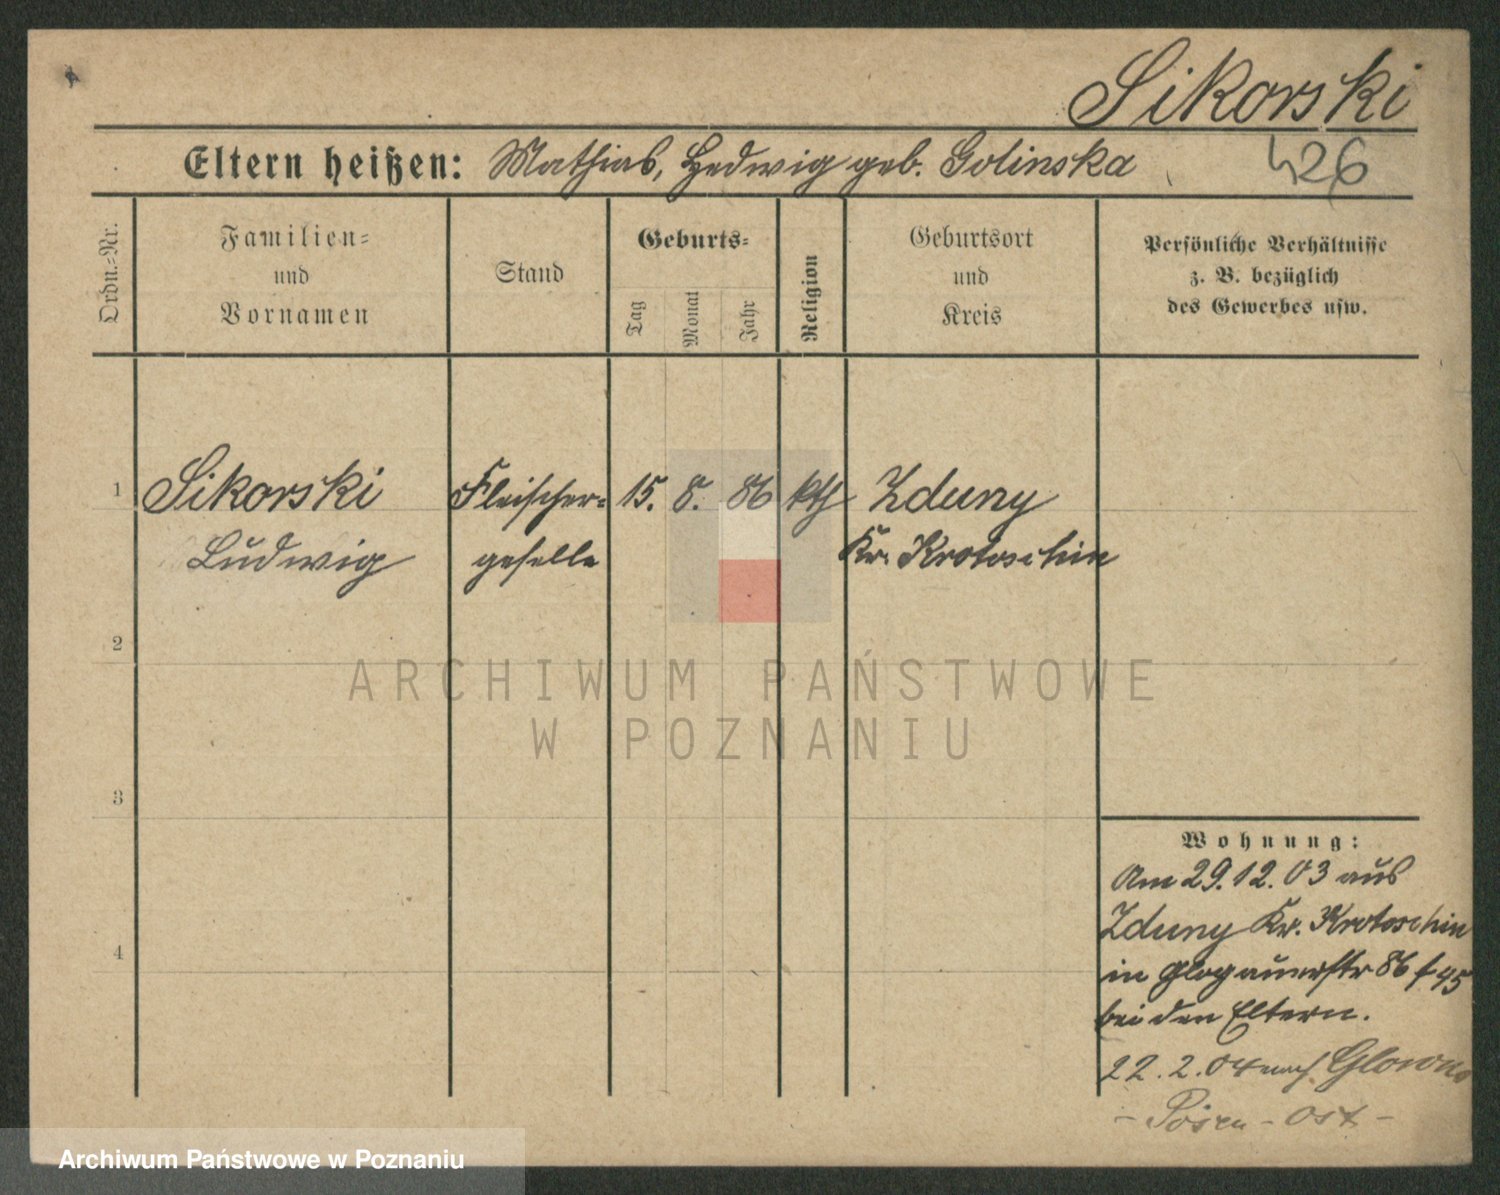 Sikorski
Eltern heißen: Mathias, Hedwig geb. Golinska
426
Ordn.=Nr.
Familien=
und
Vornamen
Stand
Geburts=
Tag
Monat
Jahr
Religion
Geburtsort
und
Kreis
Persönliche Verhältnisse
z. B. bezüglich
des Gewerbes usw.
1
Sikorski
Ludwig
Fleischer=
geselle
15. 8. 86
kth
Zduny
Kr. Krotoschin
2
ARCHIWUM PAŃSTWOWE
W POZNANIU
3
4
Wohnung:
Am 29.12.03 aus
Zduny Kr. Krotoschin
in Glogauerstr 86
bei den Eltern.
22.2.04 nach Glowno
- Posen - Ost -
Archiwum Państwowe w Poznaniu